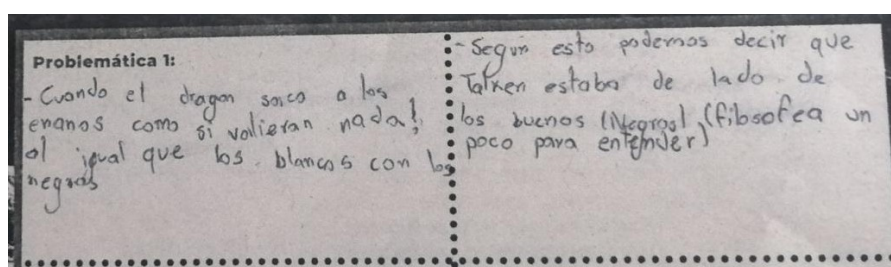 Problemática 1:
- Cuando el dragon saco a los
enanos como si valieran nada!,
al igual que los blancos con los
negros
- Según esto podemos decir que
Talken estaba de lado de
los buenos (Negros) (filosofea un
poco para entender)